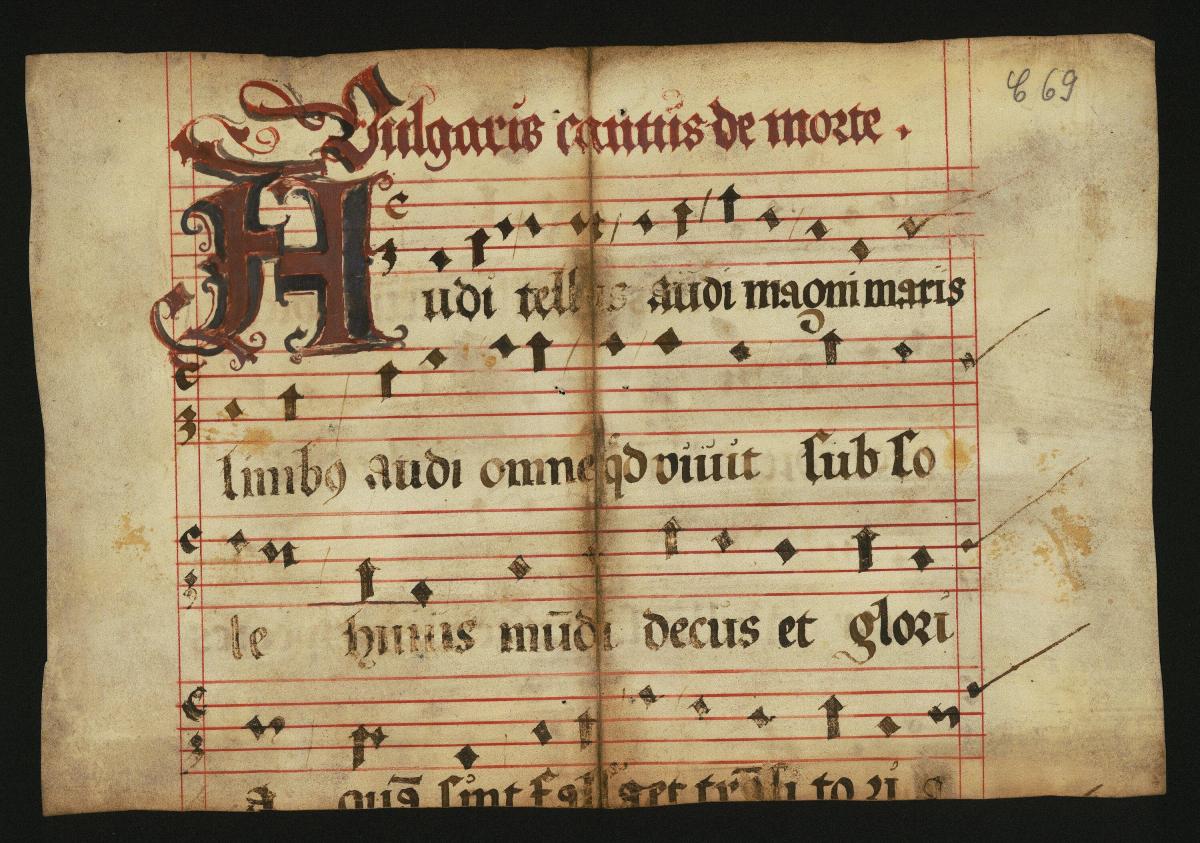 C 69
Vulgaris cantus de morte .
Audi tellus audi magni maris
limbꝯ audi omne qd viuit sub so
le huius mūdi decus et glori
a quā sint fal et trāsi to ri a